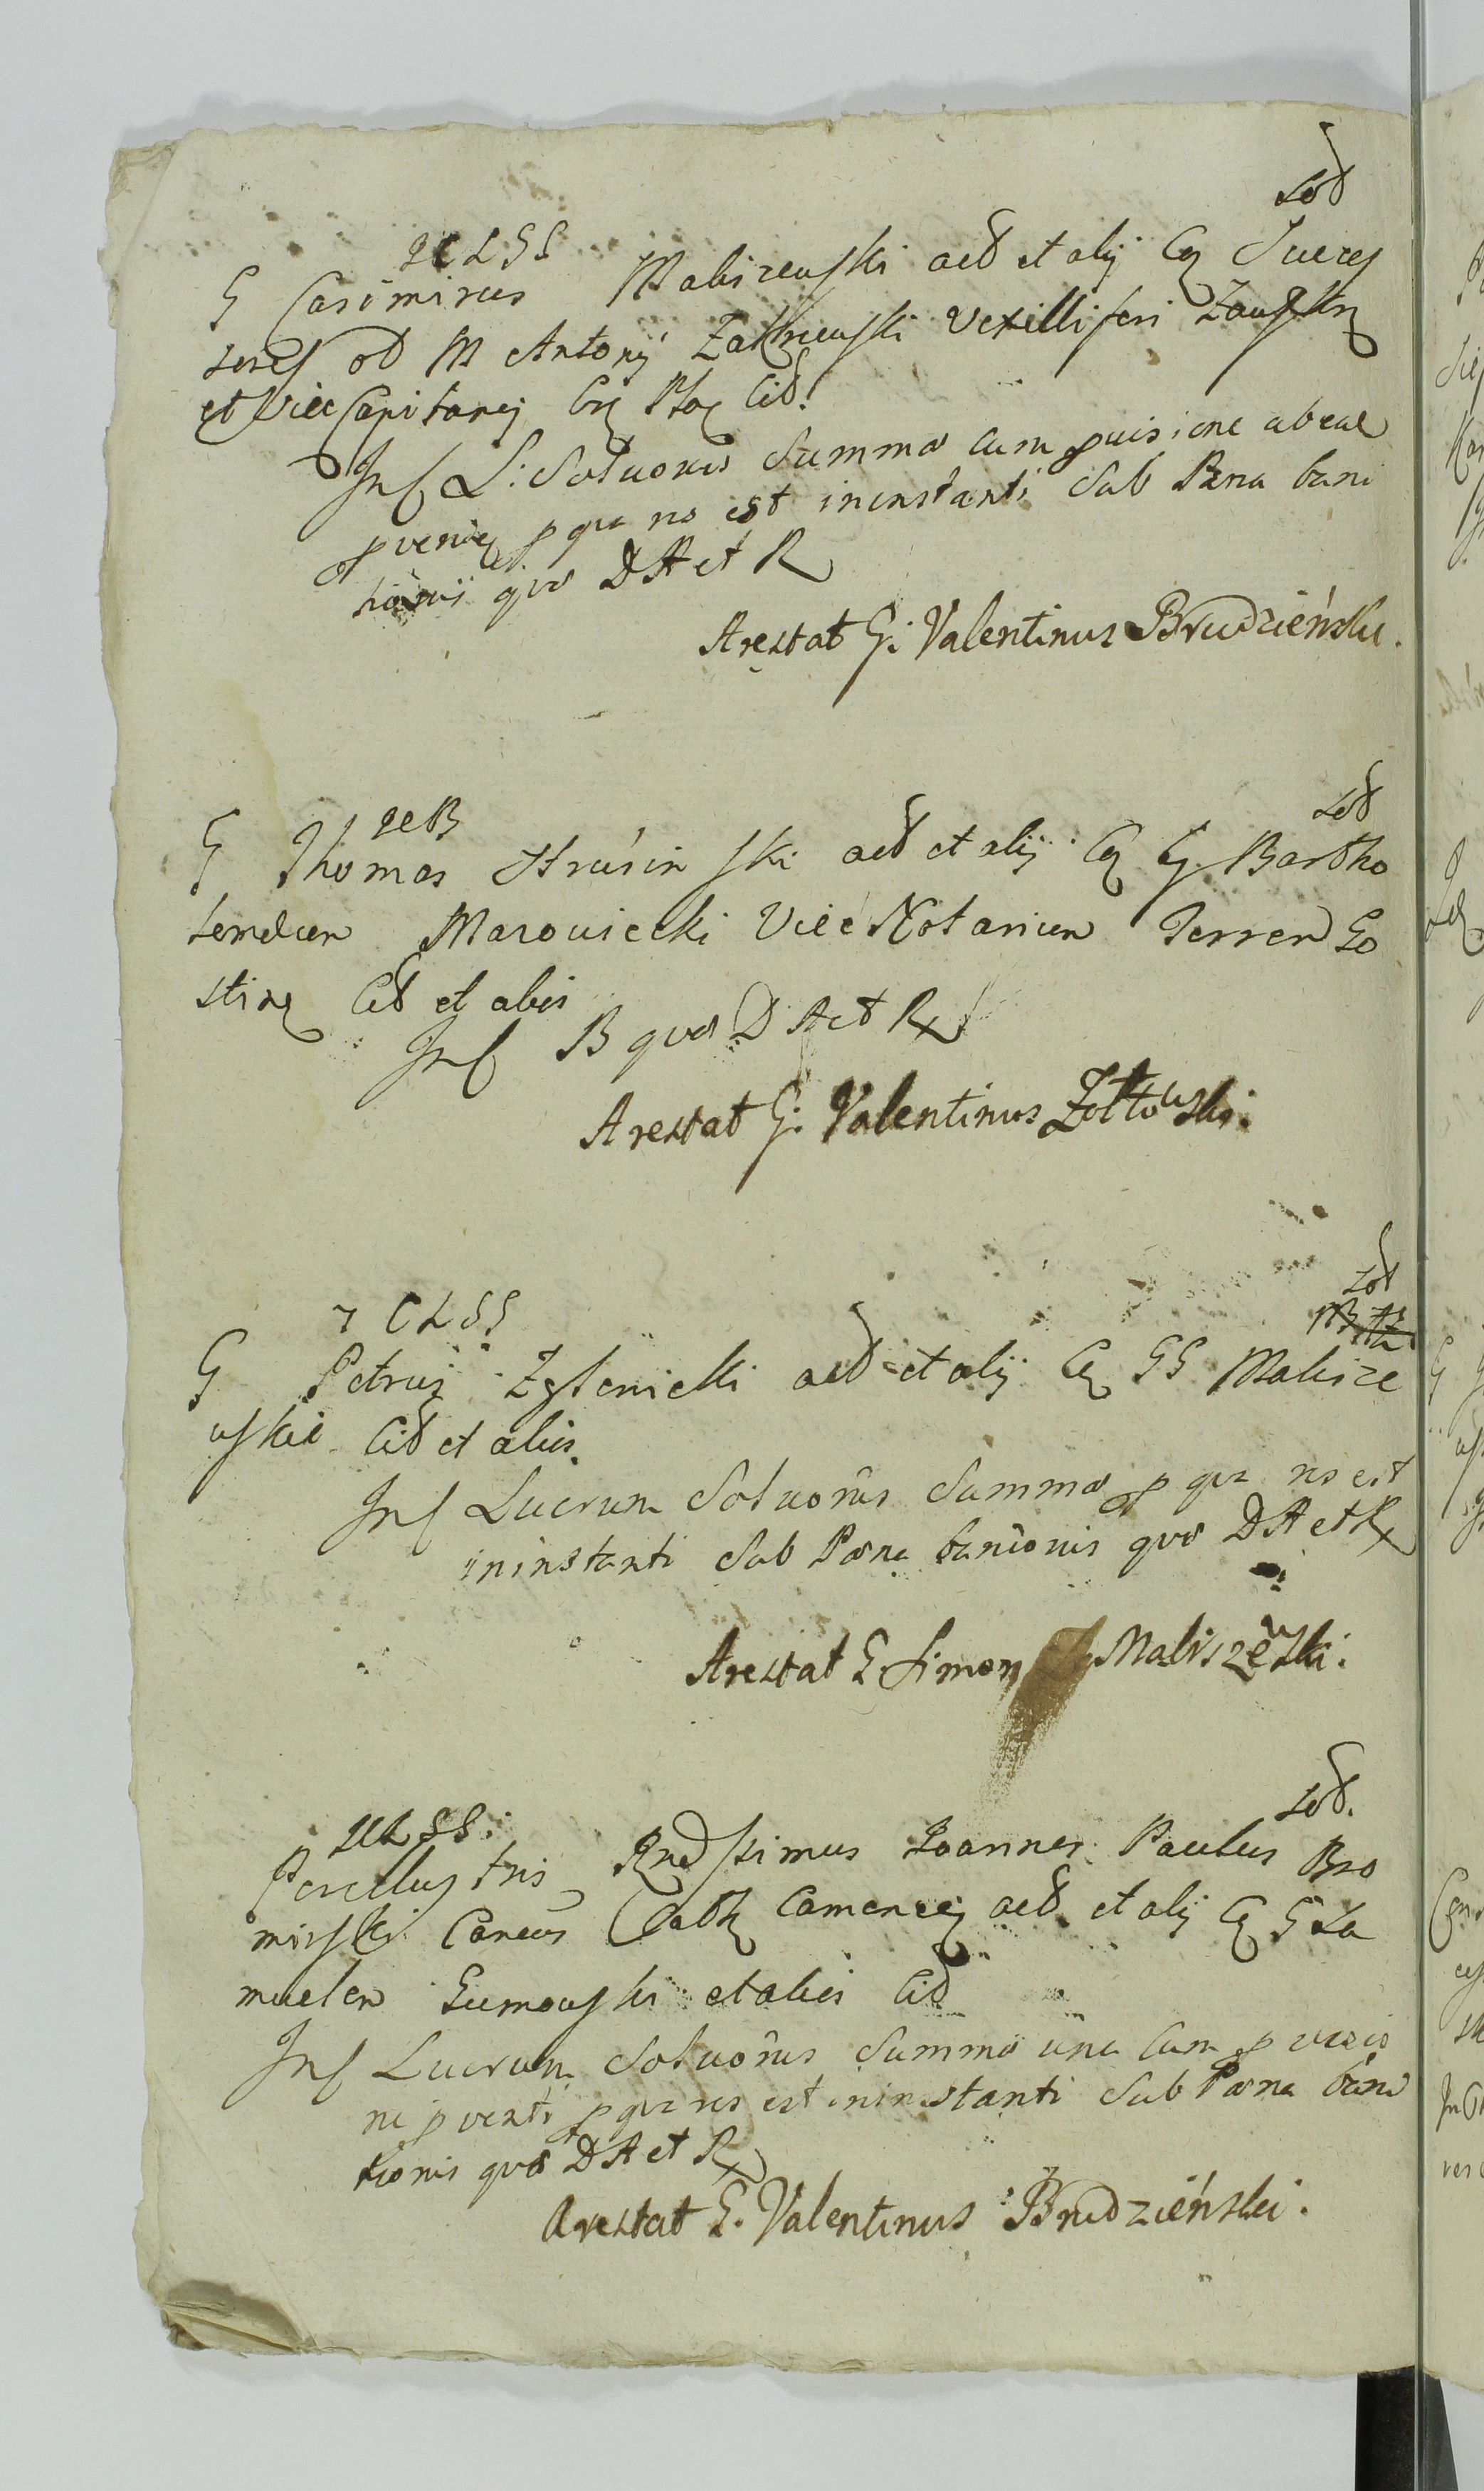 sod
2CLSS
G Casimirus Maliszewski acd et alij Cq Succes
sores od M Antonij Zakrzewski Vexilliferi Zawskrz
et Vice Capitanej Crz Ploc Cid.
Inf L: Solvonis Summa cum pvisione ab eal
pvenien p qua res est ininstanti Sub Pena bani
tionis quo D A et R
Arestat G: Valentinus Brudzieński.
sod
2CB
G Thomas Strusinski acd et alij Cq G Bartho
lemeum Mazowiecki Vice Notarium Terren Go
stinen Cid et alios
Inf B quo D A et R
Arestat G: Valentinus Zołtowski.
sod
7 CLSS
G Petrus Zglenicki acd et alij Cq GG Malisze
wskie Cid et alios.
Inf Lucrum Solvonis Summa p qua res est
ininstanti Sub Pœna banionis quo D A et R
Arestat G Simon Maliszewski.
sod.
2CLSS.
Perillustris Rndssimus Joannes Paulus Bro
mirski Cancus Cath Camenecen acd et alij Cq G Sa
muelem Gumowski et alios Cid
Inf Lucrum Solvonis Summa una cum pvisio
ne pventi p qua res est ininstanti Sub Pœna bani
tionis quo D A et R
Arestat G. Valentinus Brudzieński.